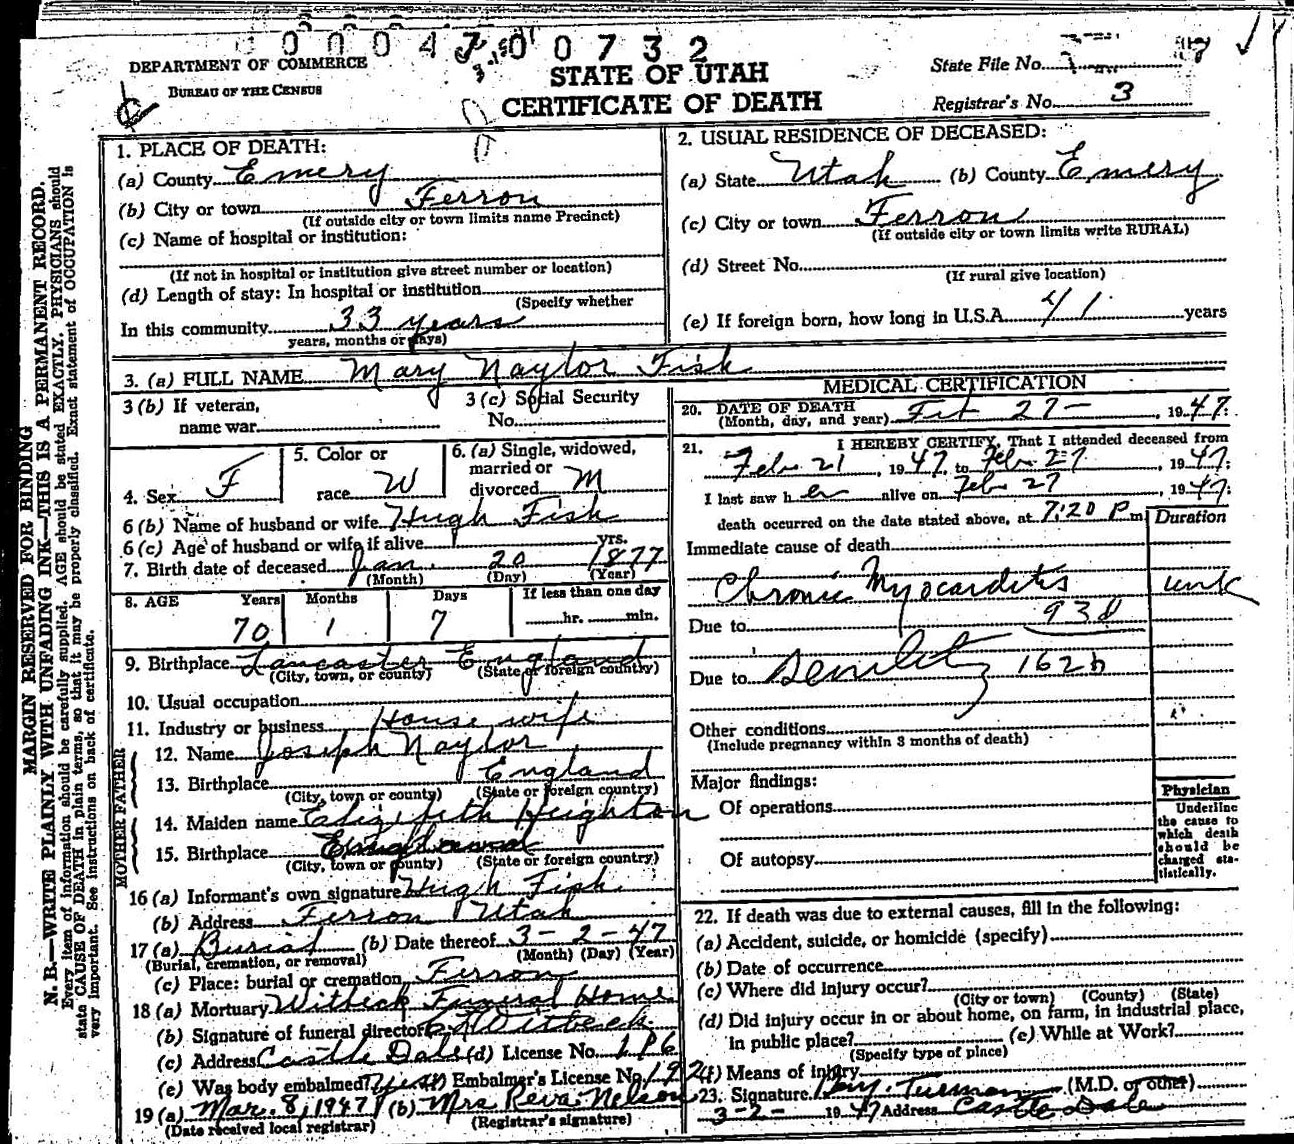 0 0 0 4 7 0 0 7 3 2
DEPARTMENT OF COMMERCE
BUREAU OF THE CENSUS
STATE OF UTAH
CERTIFICATE OF DEATH
State File No.
Registrar's No. 3
MARGIN RESERVED FOR BINDING
N. B.—WRITE PLAINLY WITH UNFADING INK—THIS IS A PERMANENT RECORD.
Every item of information should be carefully supplied. AGE should be stated EXACTLY. PHYSICIANS should
state CAUSE OF DEATH in plain terms, so that it may be properly classified. Exact statement of OCCUPATION is
very important. See instructions on back of certificate.
1. PLACE OF DEATH:
(a) County Emery
(b) City or town Ferron
(If outside city or town limits name Precinct)
(c) Name of hospital or institution:
(If not in hospital or institution give street number or location)
(d) Length of stay: In hospital or institution
(Specify whether
In this community 33 years
years, months or days)
2. USUAL RESIDENCE OF DECEASED:
(a) State Utah (b) County Emery
(c) City or town Ferron
(If outside city or town limits write RURAL)
(d) Street No.
(If rural give location)
(e) If foreign born, how long in U.S.A. 41 years
3. (a) FULL NAME Mary Naylor Fish
3 (b) If veteran,
name war
3 (c) Social Security
No.
4. Sex F
5. Color or
race W
6. (a) Single, widowed,
married or
divorced M
6 (b) Name of husband or wife Hugh Fish
6 (c) Age of husband or wife if alive yrs.
7. Birth date of deceased Jan. 20 1877
(Month) (Day) (Year)
8. AGE Years Months Days If less than one day
70 1 7 hr. min.
9. Birthplace Lancaster England
(City, town, or county) (State or foreign country)
10. Usual occupation
11. Industry or business House wife
FATHER
12. Name Joseph Naylor
13. Birthplace England
(City, town or county) (State or foreign country)
MOTHER
14. Maiden name Elizabeth Heighton
15. Birthplace England
(City, town or county) (State or foreign country)
16 (a) Informant's own signature Hugh Fish
(b) Address Ferron Utah
17 (a) Burial (b) Date thereof 3-2-47
(Burial, cremation, or removal) (Month) (Day) (Year)
(c) Place: burial or cremation Ferron
18 (a) Mortuary Witbeck Funeral Home
(b) Signature of funeral director Witbeck
(c) Address Castle Dale (d) License No. 196
(e) Was body embalmed? Yes (f) Embalmer's License No. 192
19 (a) Mar. 8, 1947 (b) Mrs Reva Nelson
(Date received local registrar) (Registrar's signature)
MEDICAL CERTIFICATION
20. DATE OF DEATH
(Month, day, and year) Feb 27- , 1947.
21. I HEREBY CERTIFY, That I attended deceased from
Feb. 21 , 1947, to Feb. 27 , 1947;
I last saw her alive on Feb 27 , 1947;
death occurred on the date stated above, at 7:20 P m
Duration
Immediate cause of death
Chronic Myocarditis unk
Due to 93d
Due to Senility 162b
Other conditions
(Include pregnancy within 3 months of death)
Major findings:
Of operations
Of autopsy
Physician
Underline
the cause to
which death
should be
charged sta-
tistically.
22. If death was due to external causes, fill in the following:
(a) Accident, suicide, or homicide (specify)
(b) Date of occurrence
(c) Where did injury occur?
(City or town) (County) (State)
(d) Did injury occur in or about home, on farm, in industrial place,
in public place? (e) While at Work?
(Specify type of place)
(f) Means of injury
23. Signature Turman (M.D. or other)
3-2- 1947 Address Castle Dale